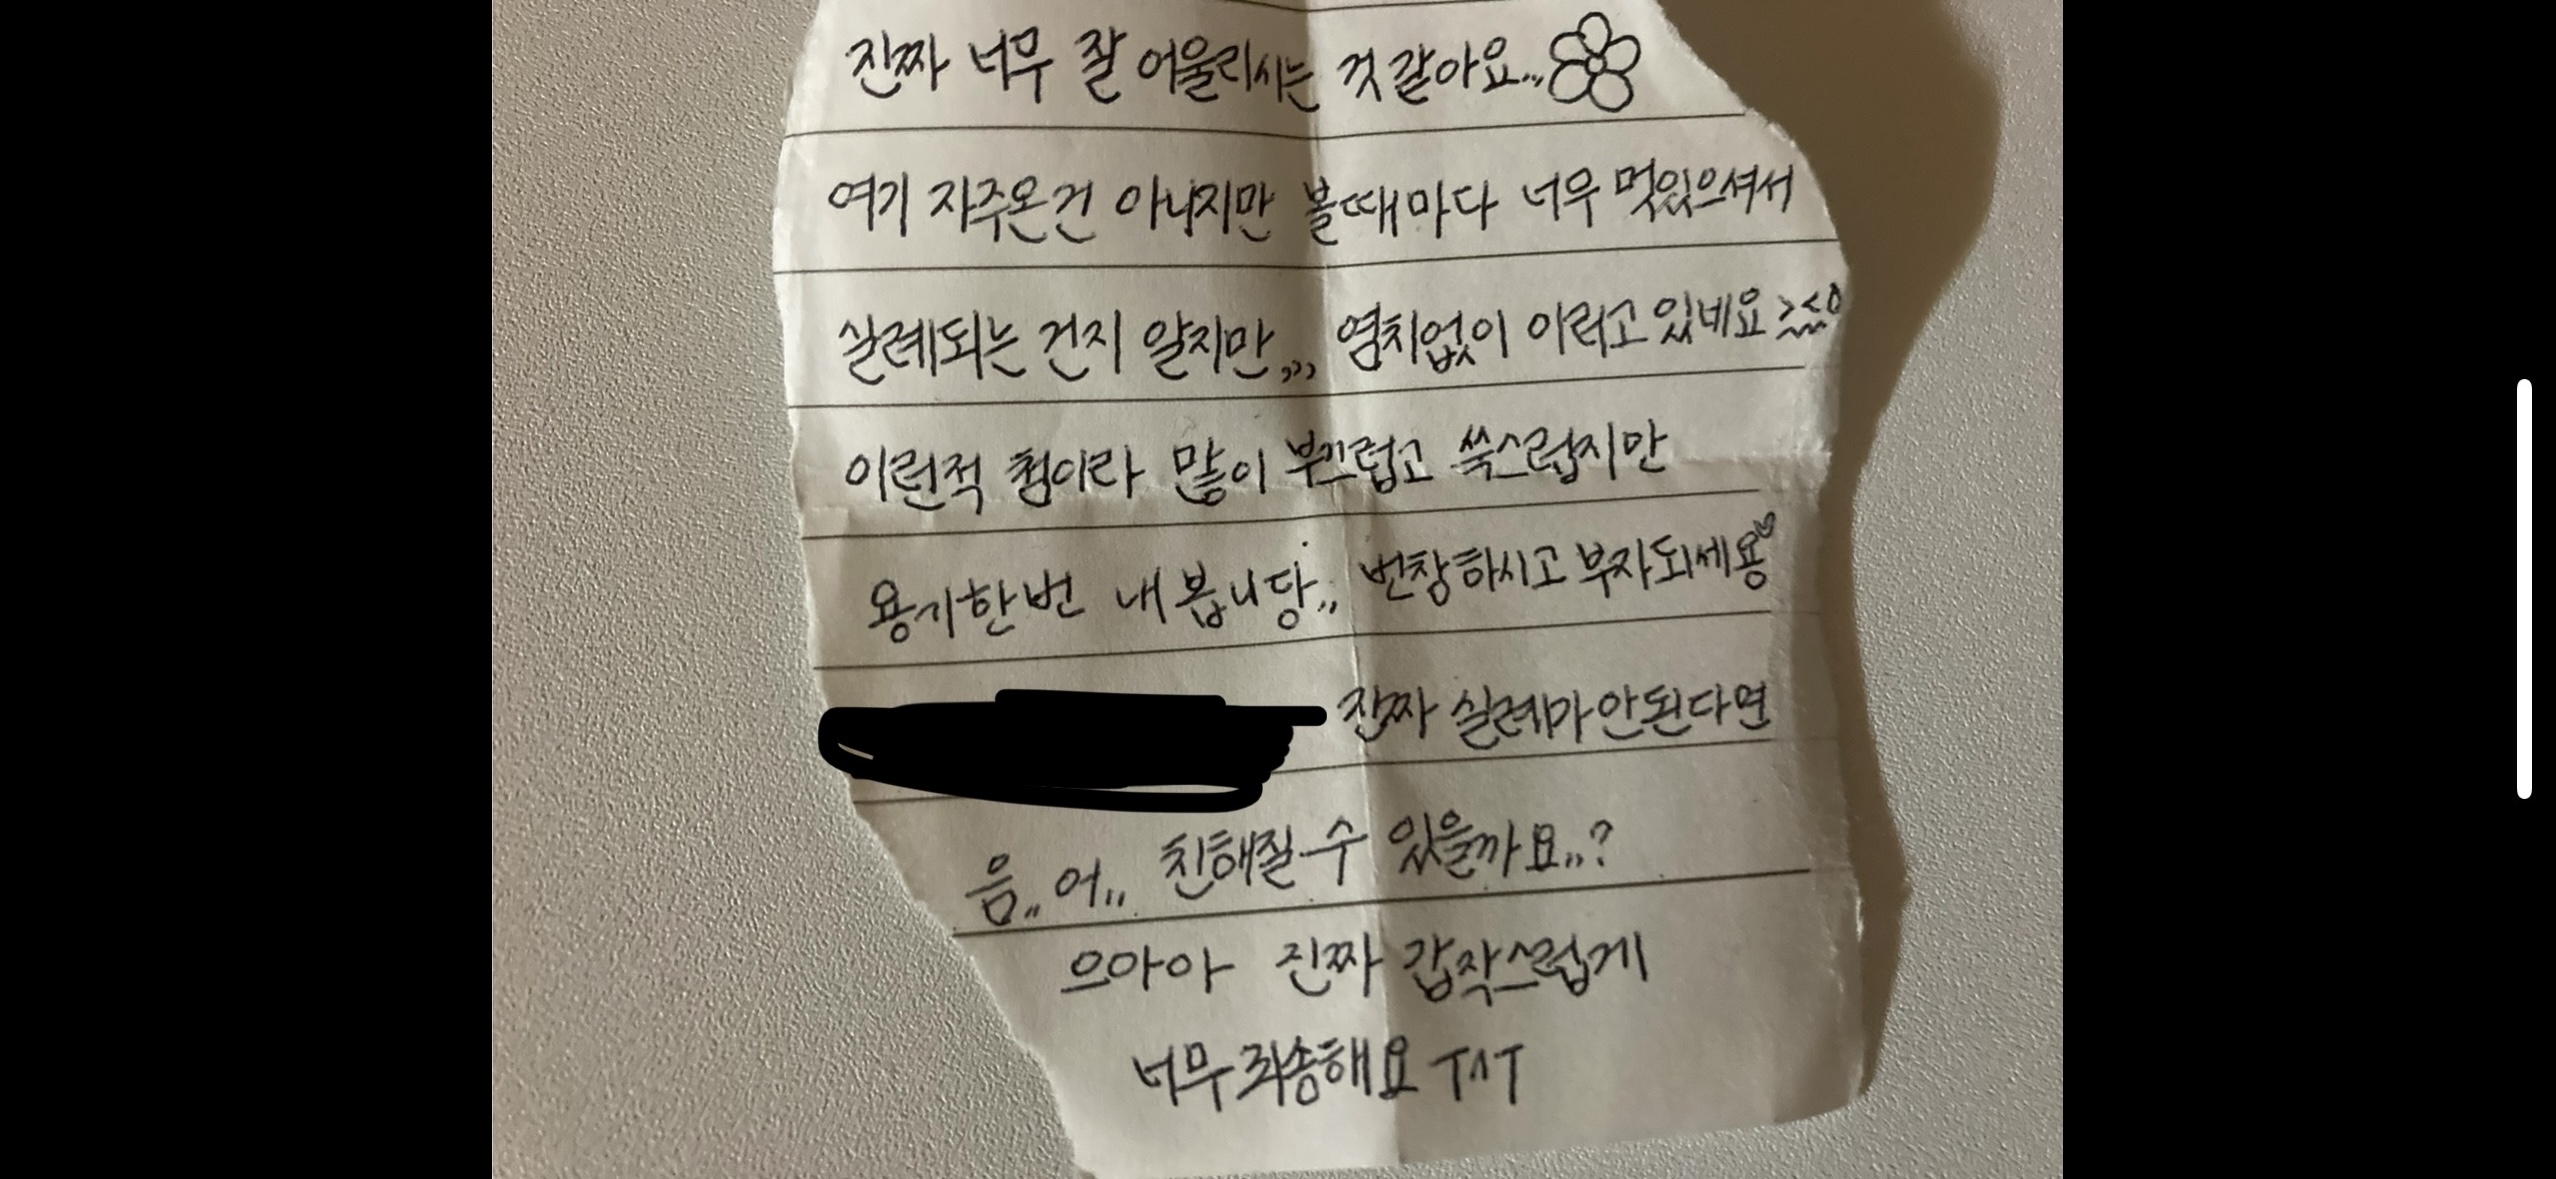 진짜 너무 잘 어울리시는 것 같아요...
여기 자주온건 아니지만 볼때마다 너무 멋있으셔서
실례되는 건지 알지만,,, 염치없이 이러고 있네요 >~<
이런적 첨이라 많이 부끄럽고 쑥스럽지만
용기한번 내봅니당,, 번창하시고 부자되세용♡
진짜 실례가안된다면
음,, 어,, 친해질 수 있을까요,,?
으아아 진짜 갑작스럽게
너무죄송해요 ㅜ^ㅜ